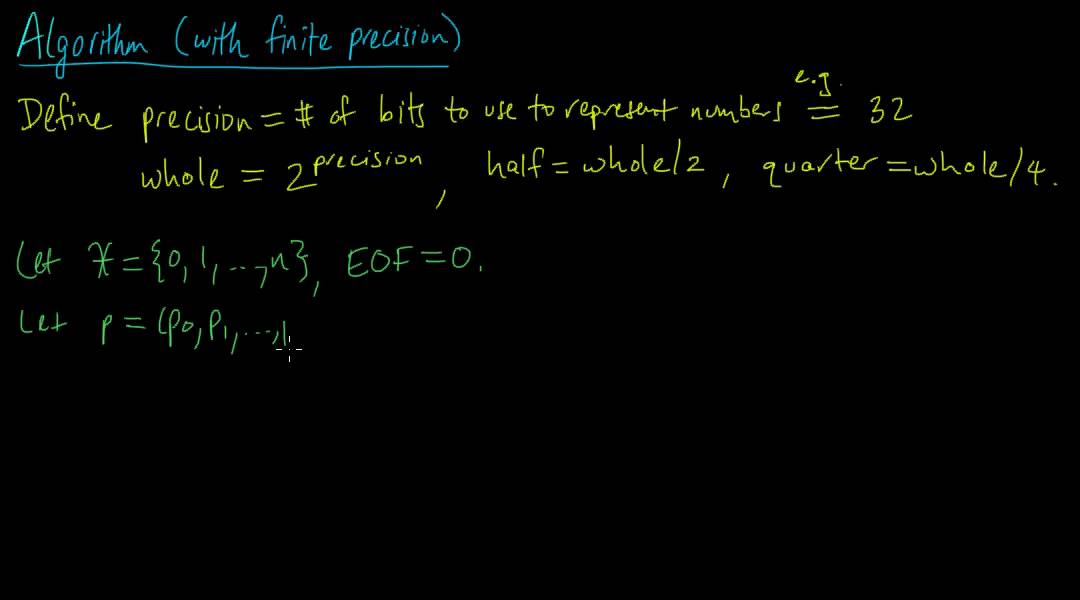 Algorithm (with finite precision)
Define precision = # of bits to use to represent numbers e.g. = 32
whole = 2^precision, half = whole/2, quarter = whole/4.
Let X = {0, 1, ..., n}, EOF = 0.
Let p = (p0, p1, ...,